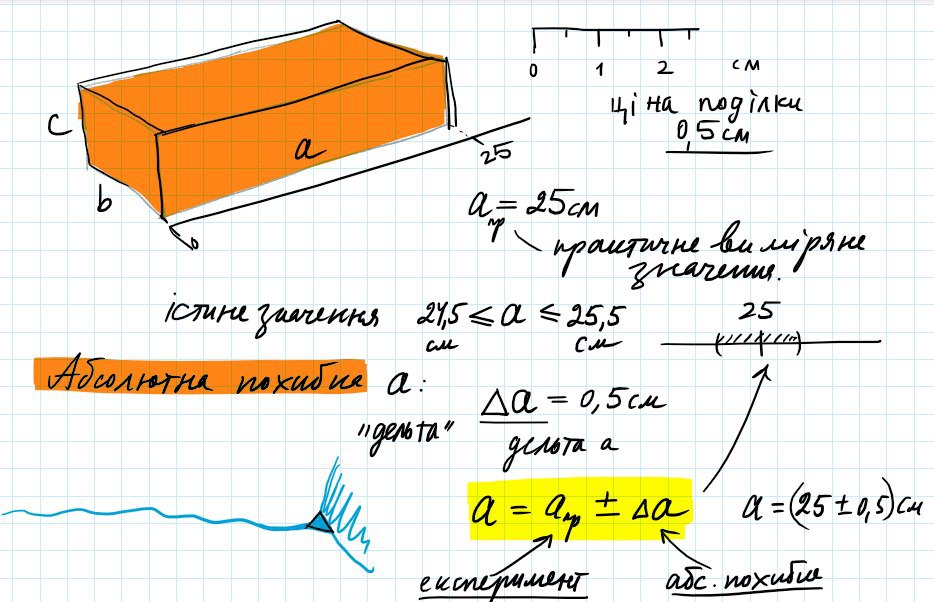 0 1 2 см
ціна поділки
0,5 см
c
a
b
0
25
aпр = 25 см
практичне виміряне
значення.
істине значення 24,5 см ≤ a ≤ 25,5 см
25
Абсолютна похибка a:
"дельта"
Δa = 0,5 см
дельта a
a = aпр ± Δa
a = (25 ± 0,5) см
експеримент
абс. похибка